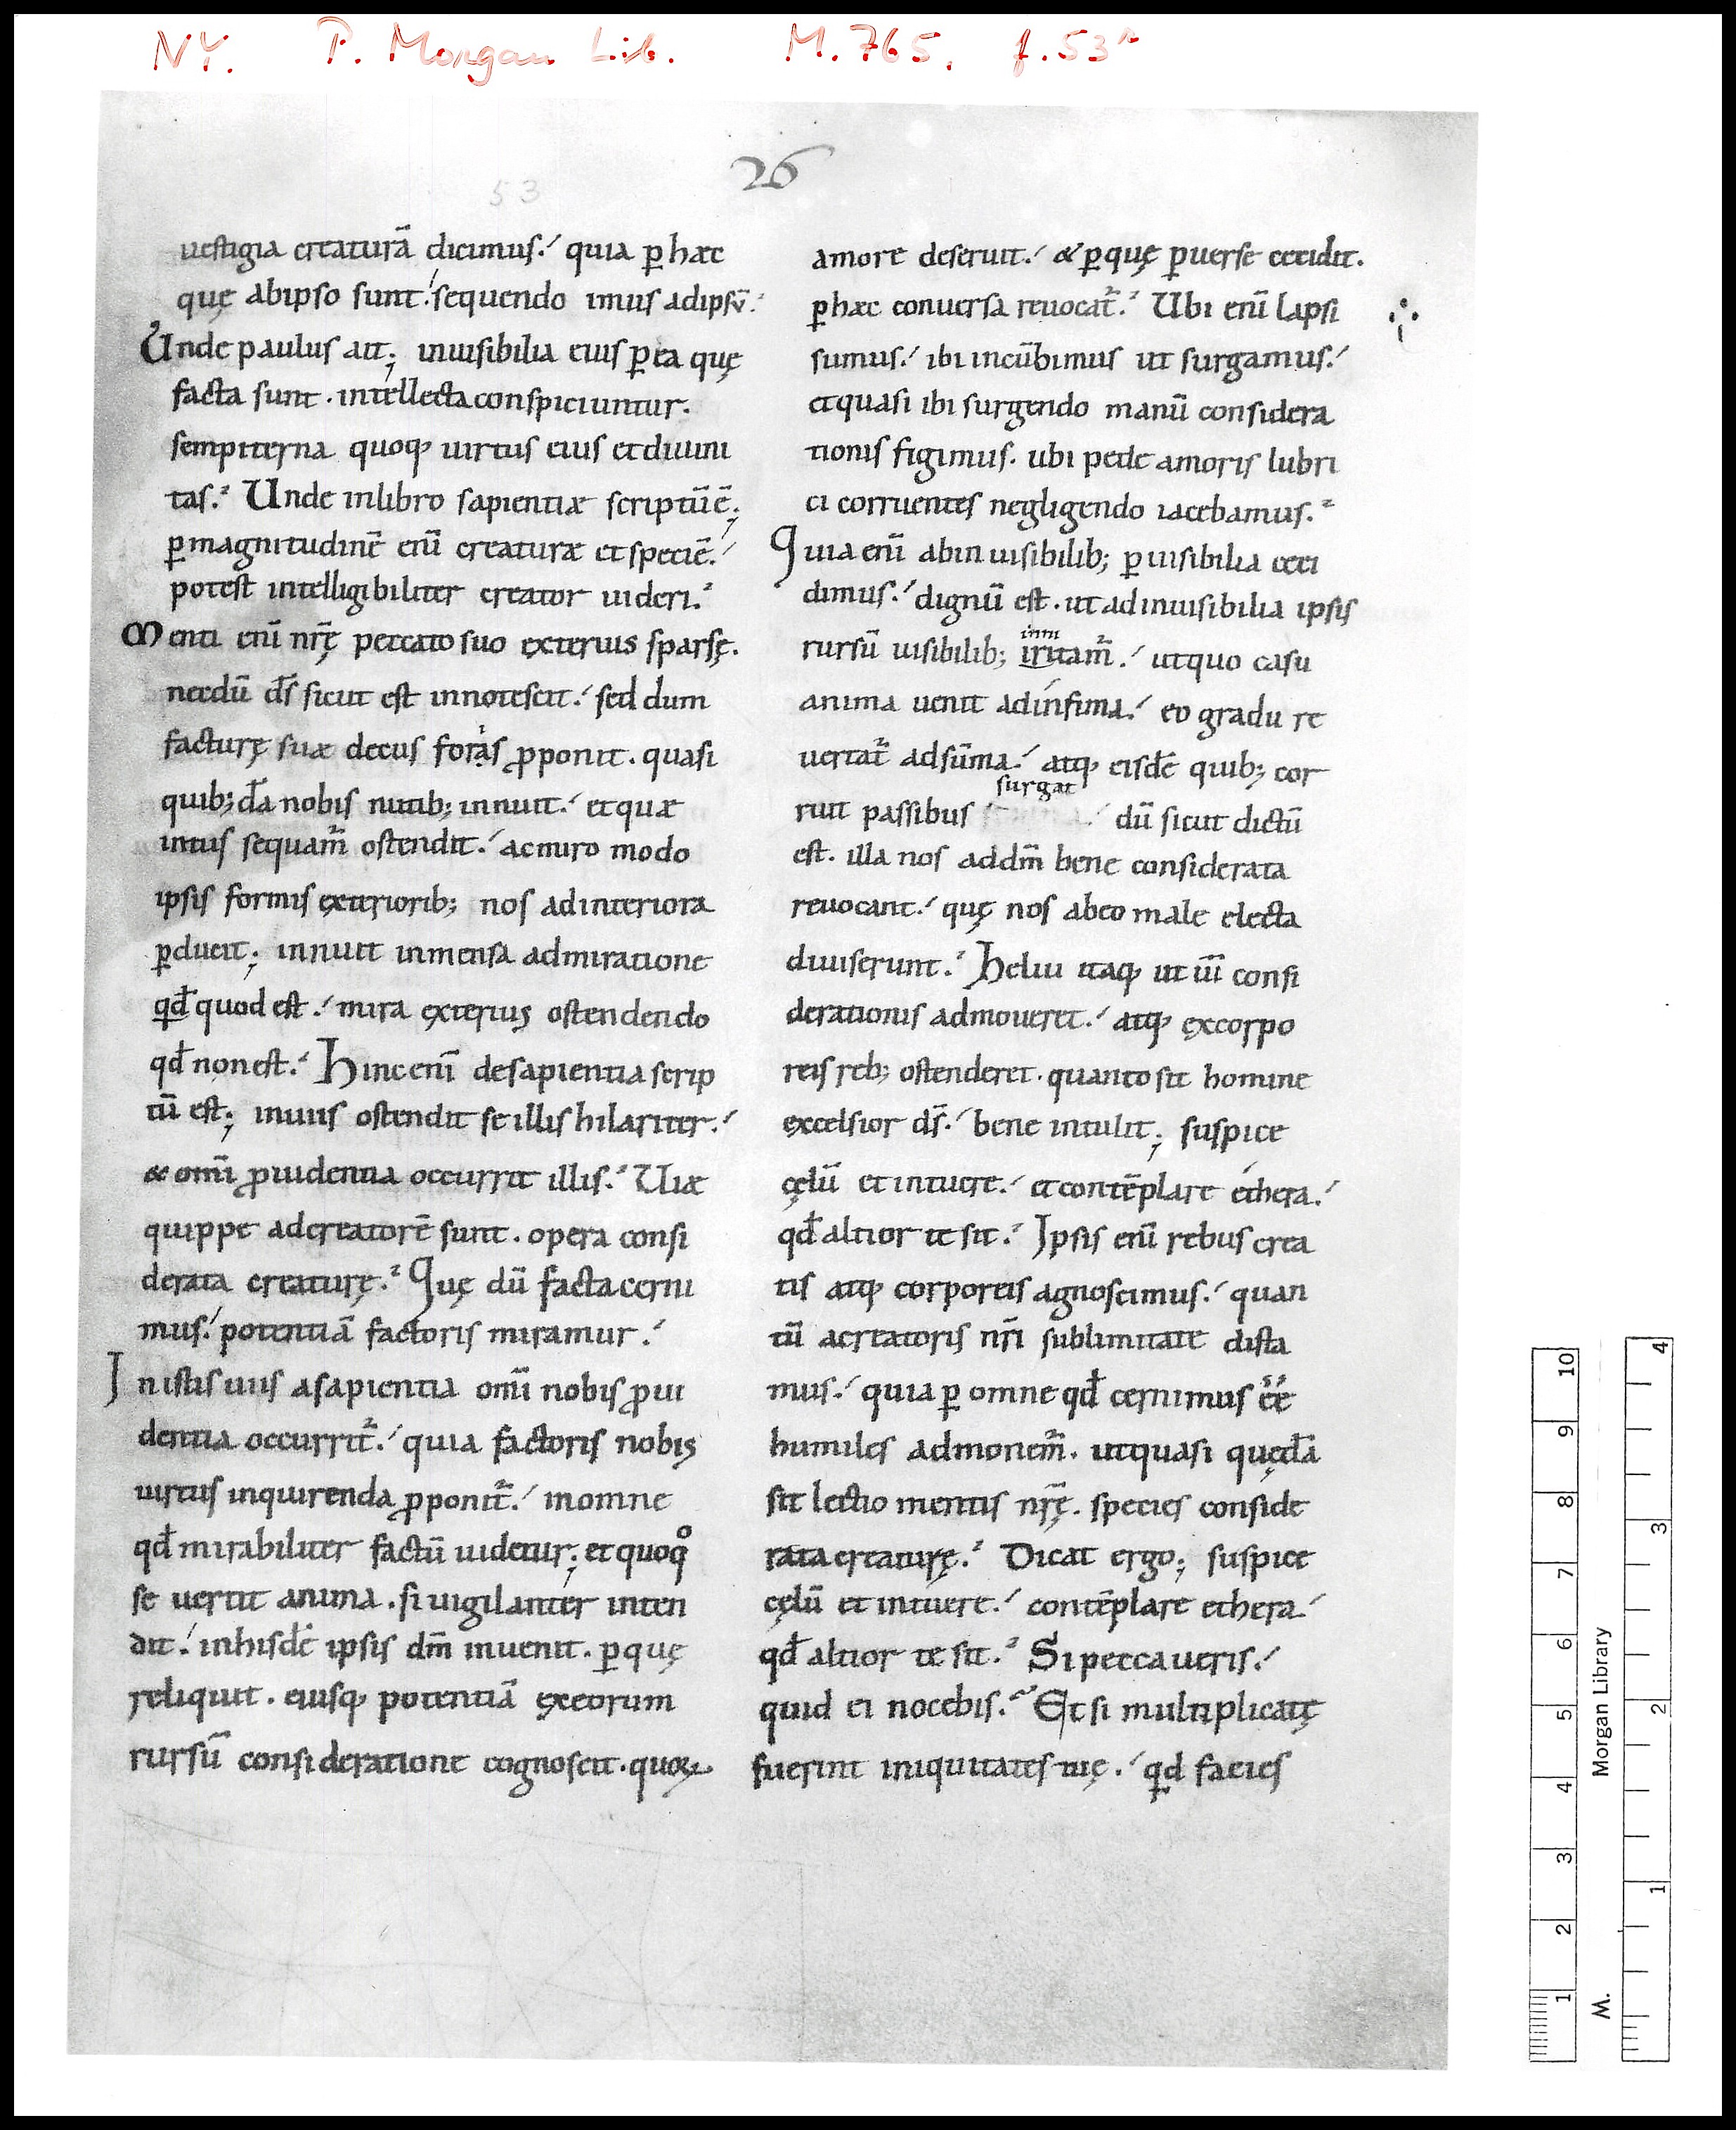 NY. P. Morgan Lib. M.765. f.53r
26
53
uestigia creaturā dicimus. quia ꝑ hæc
quę abipso sunt. sequendo imus adipsū.
Unde paulus ait; inuisibilia eius ꝑ ea quę
facta sunt. intellecta conspiciuntur.
sempiterna quoq; uirtus eius et diuini
tas. Unde inlibro sapientiæ scriptū ē;
ꝑ magnitudinē enī creaturæ et speciē.
potest intelligibiliter creator uideri.
Menti enī nr̄ę peccato suo exterius sparsę.
necdū d̄s sicut est innotescit. sed dum
facturę suæ decus foras ꝓponit. quasi
quib; dā nobis nutib; innuit. et quæ
intus sequam̄ ostendit. ac miro modo
ipsis formis exteriorib; nos adinteriora
ꝑducit; innuit inmensa admiratione
qđ quod est. mira exterius ostendendo
qđ non est. Hinc enī de sapientia scrip
tū est; inuiis ostendit se illis hilariter.
& omī ꝓuidentia occurrit illis. Uiæ
quippe adcreatorē sunt. opera consi
derata creaturę. Quę dū facta cerni
mus. potentiā factoris miramur.
Inistis uiis asapientia omī nobis ꝓui
dentia occurrit̄. quia factoris nobis
uirtus inquirenda ꝓponit̄. inomne
qđ mirabiliter factū uidetur; et quoqͦ
se uertit anima. si uigilanter inten
dit. inhisdē ipsis dm̄ inuenit. ꝑ quę
reliquit. eiusq; potentiā ex eorum
rursū consideratione cognoscit. quoꝝ
amore deseruit. & ꝑ quę ꝑuerse cecidit.
ꝑ hæc conuersa reuocat̄. Ubi enī lapsi
sumus. ibi incūbimus ut surgamus.
et quasi ibi surgendo manū considera
tionis figimus. ubi pede amoris lubri
ci corruentes negligendo iacebamus.
Quia enī abinuisibilib; ꝑ uisibilia ceci
dimus. dignū est. ut adinuisibilia ipsis
inni
rursū uisibilib; iritam̄. ut quo casu
anima uenit adinfima. eo gradu re
uertat̄ adsūma. atq; eisdē quib; cor
surgat
ruit passibus dū sicut dictū
est. illa nos addm̄ bene considerata
reuocant. quę nos abeo male electa
diuiserunt. Heliu itaq; ut uī consi
derationis admoueret. atq; excorpo
reis reb; ostenderet. quanto sit homine
excelsior d̄s. bene intulit; suspice
cęlū et intuere. et contēplare ethera.
qđ altior te sit. Ipsis enī rebus crea
tis atq; corporeis agnoscimus. quan
tū acreatoris nr̄i sublimitate dista
mus. quia ꝑ omne qđ cernimus ēē
humiles admonem̄. ut quasi quędā
sit lectio mentis nr̄ę. species conside
rata creaturę. Dicat ergo; suspice
cęlū et intuere. contēplare ethera.
qđ altior te sit. Si peccaueris.
quid ei nocebis. Et si multiplicatę
fuerint iniquitates tuę. qd facies
10 9 8 7 6 5 4 3 2 1
M. Morgan Library
4 3 2 1